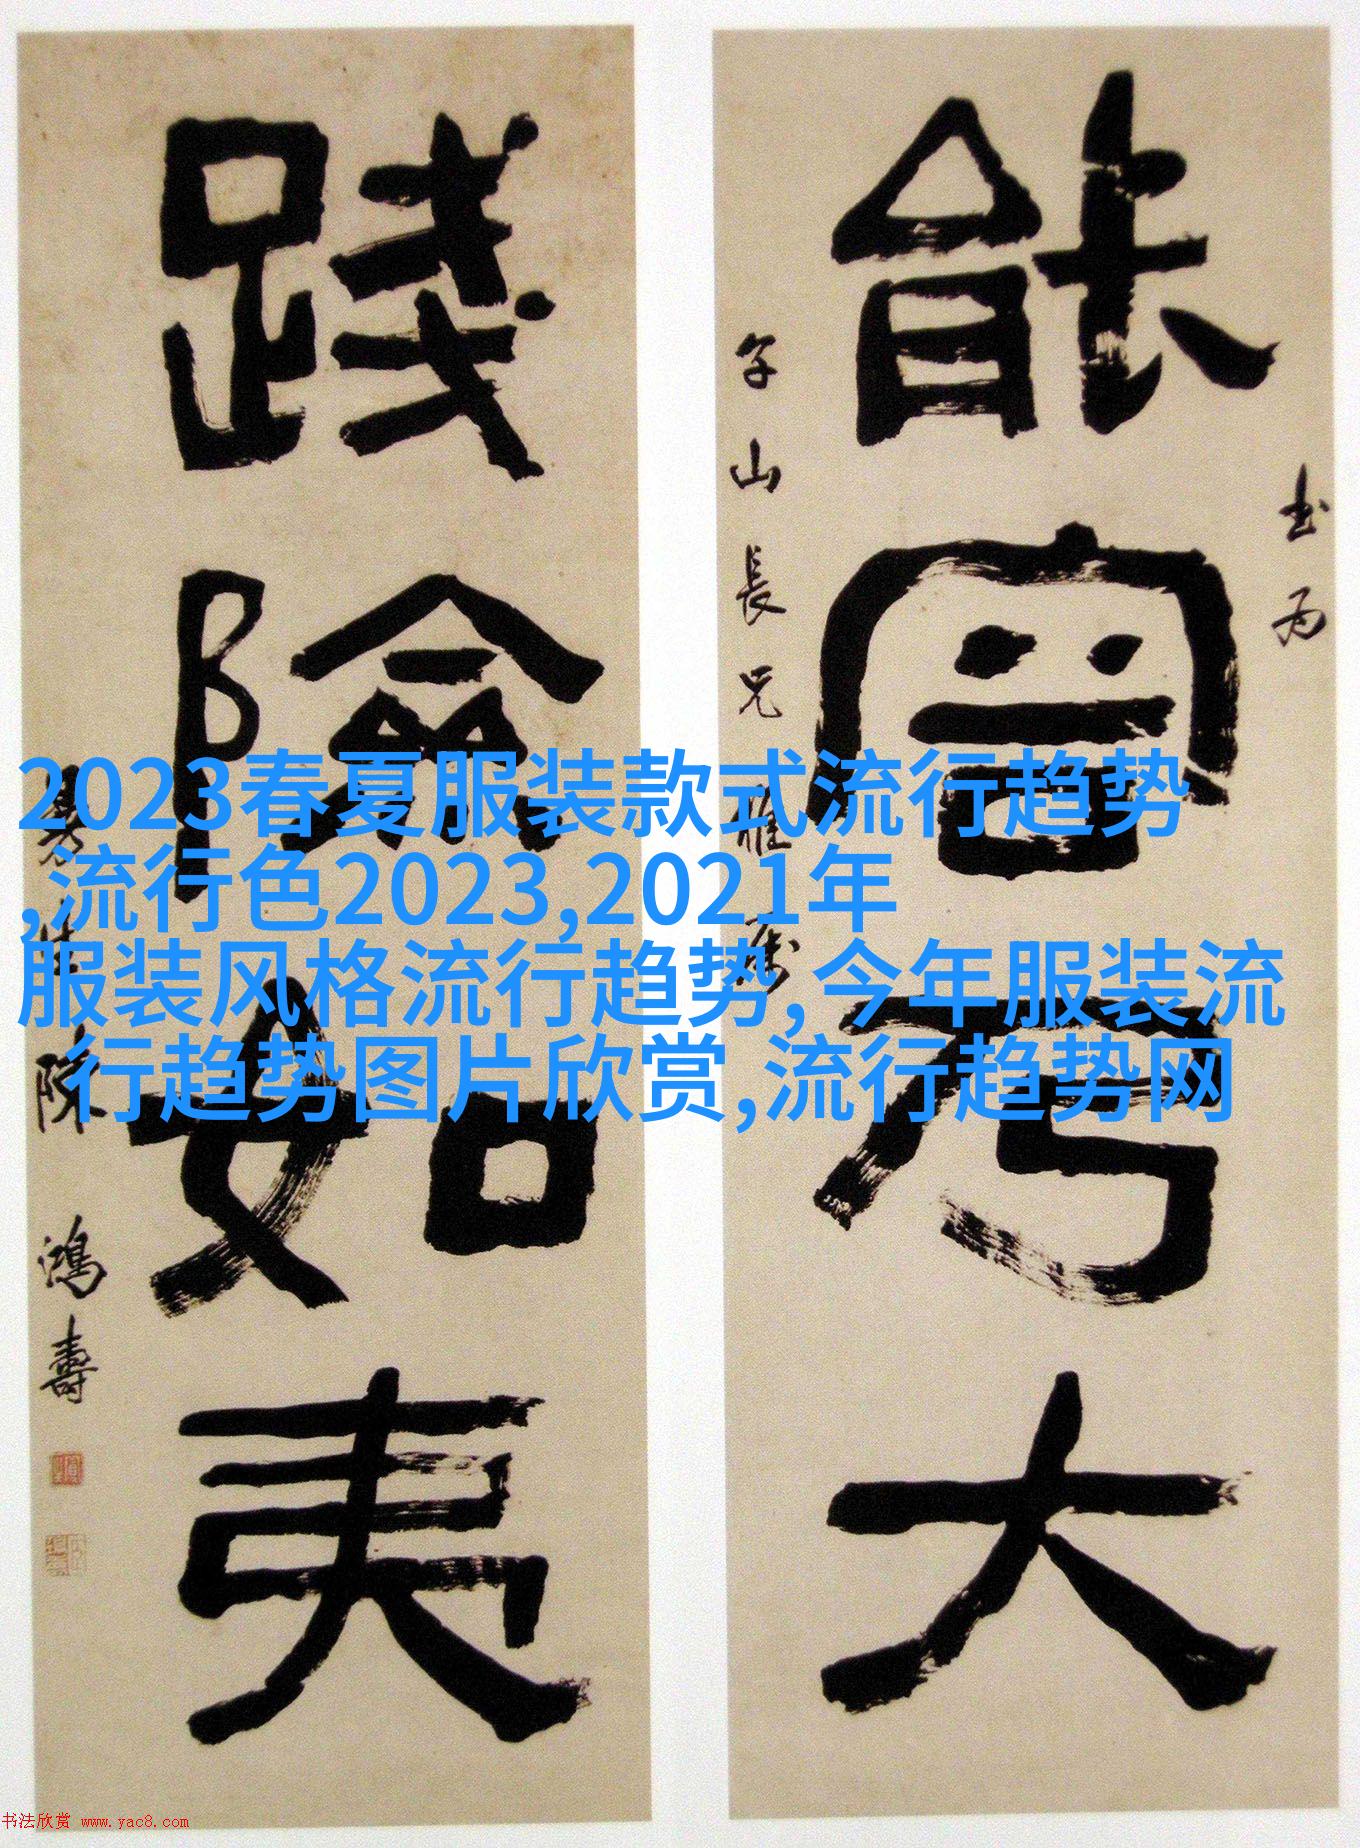 書為
能容乃大
山長兄雅屬
踐險如夷
曼生陳鴻壽
2023春夏服装款式流行趋势
,流行色2023,2021年
服装风格流行趋势,今年服装流
行趋势图片欣赏,流行趋势网
书法欣赏 www.yac8.com